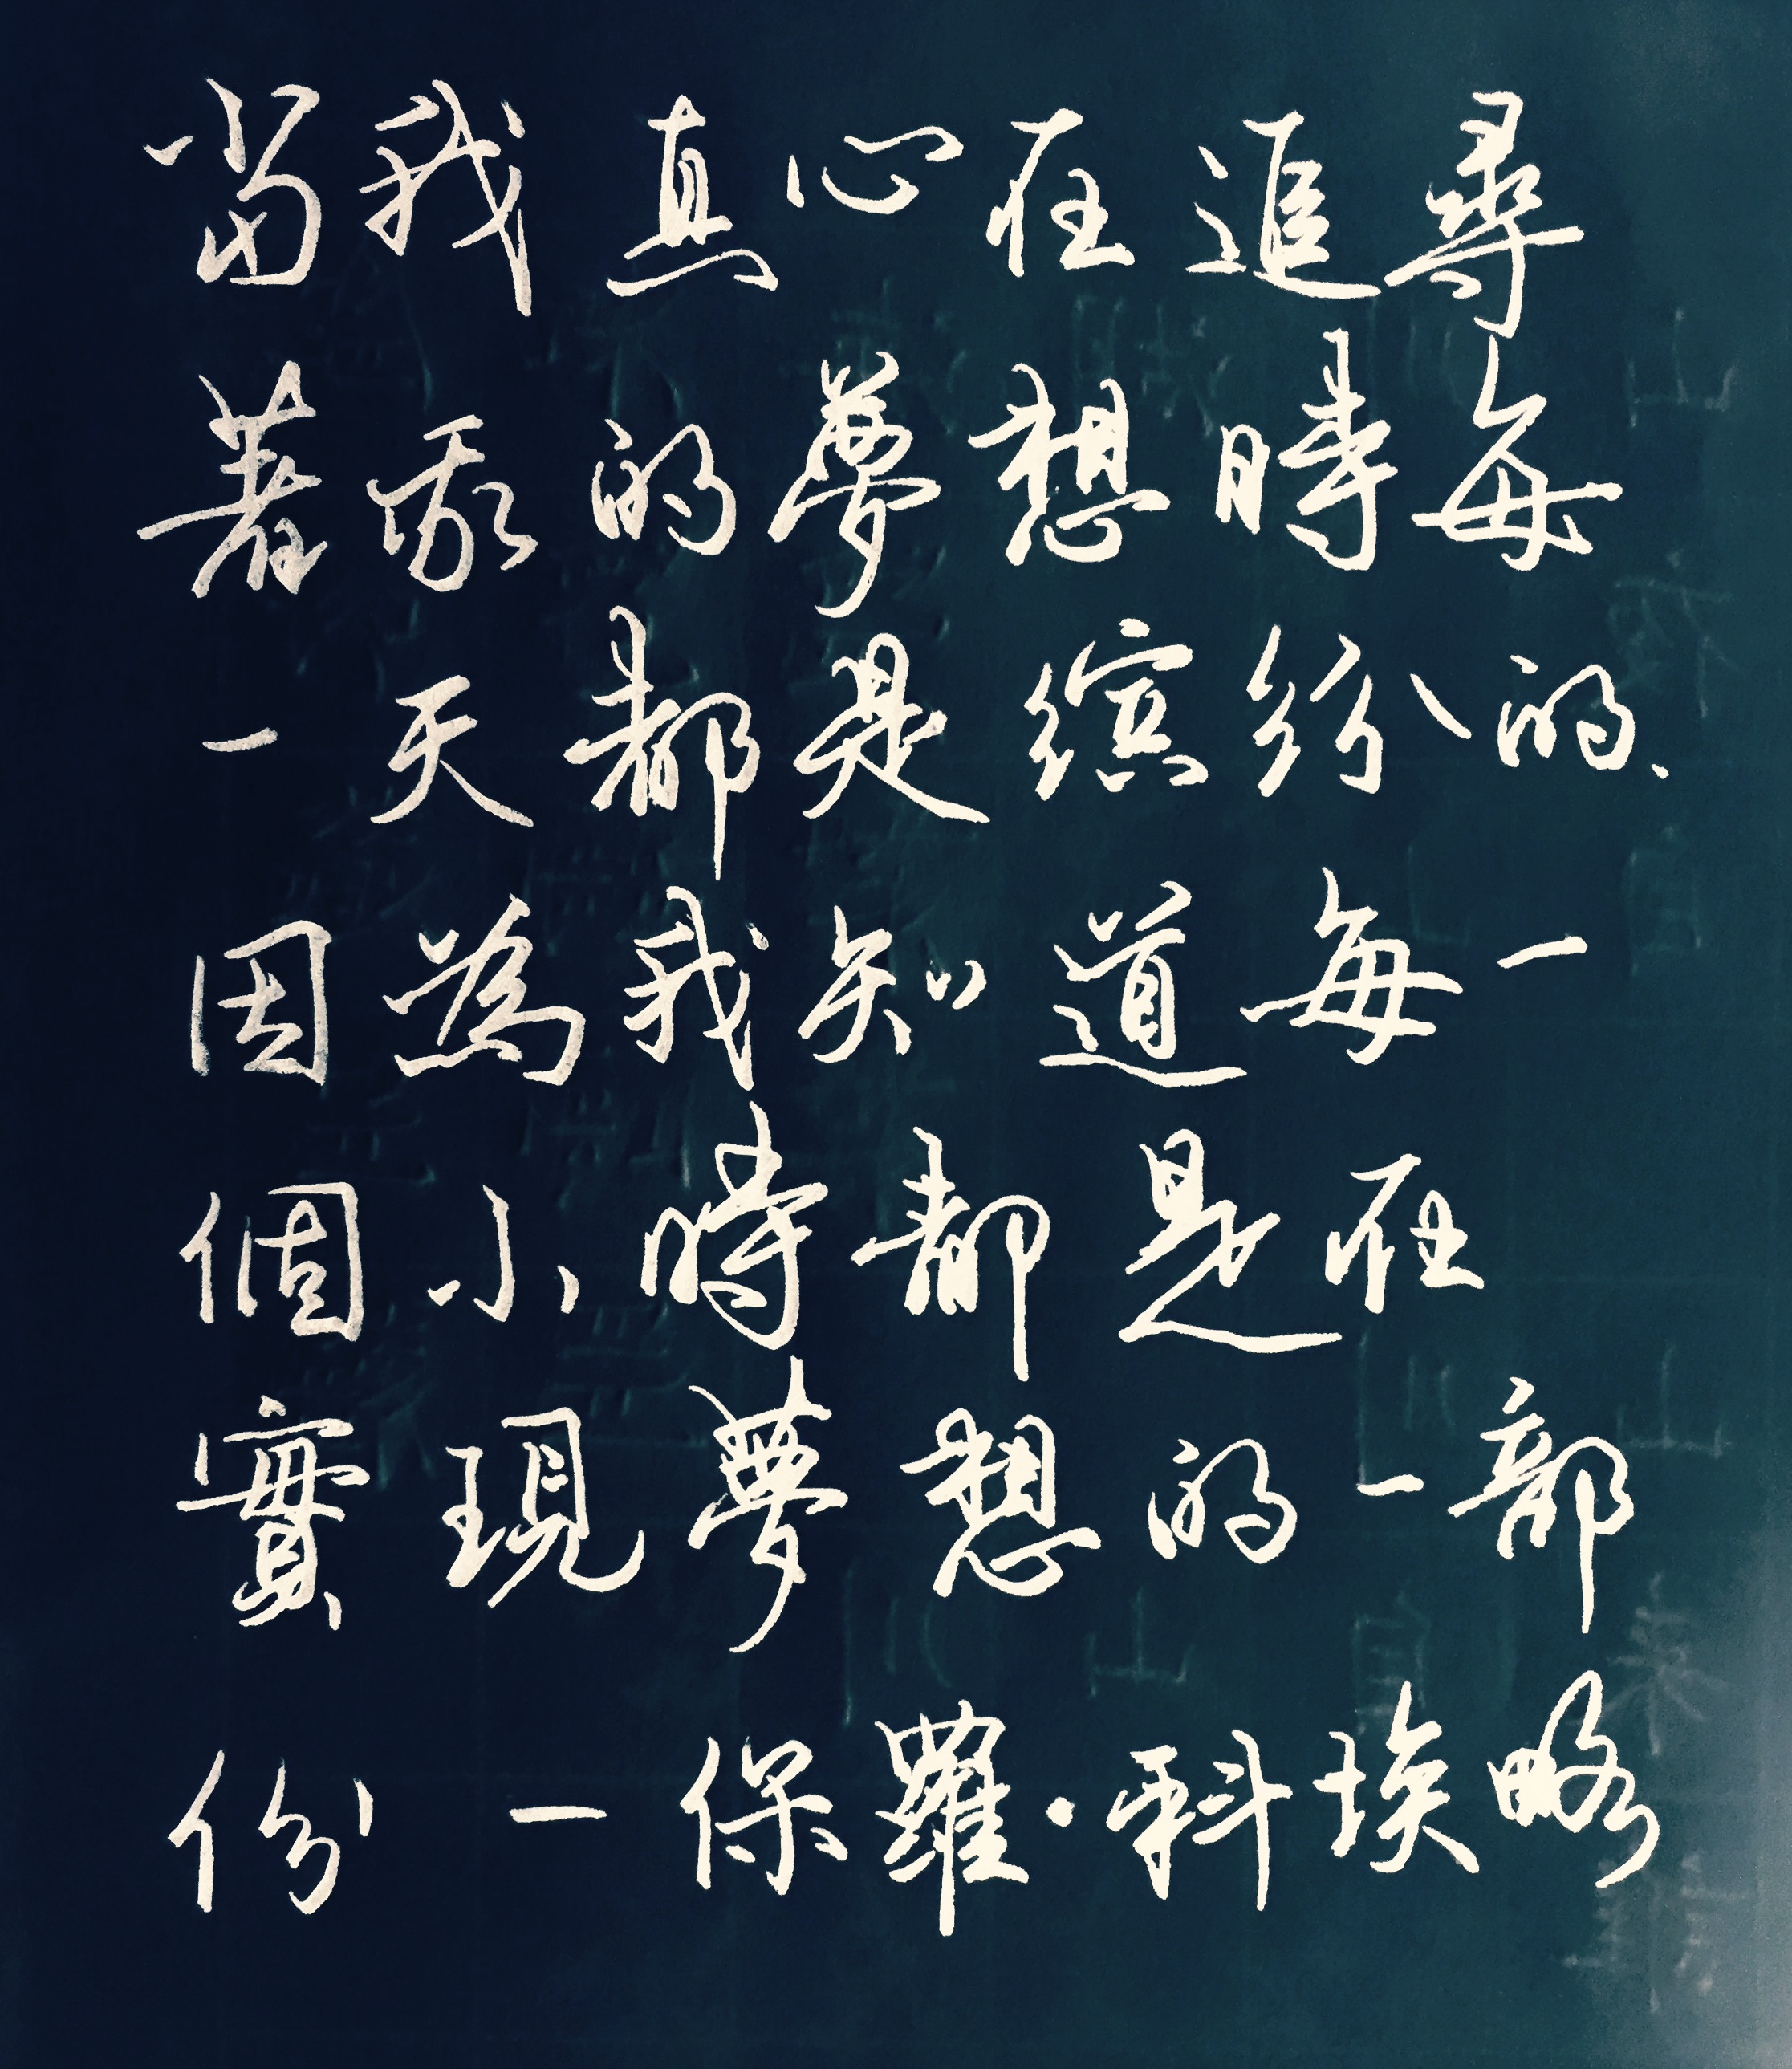 當我真心在追尋
著我的夢想時每
一天都是缤紛的、
因為我知道每一
個小時都是在
實現夢想的一部
份 — 保羅·科埃略